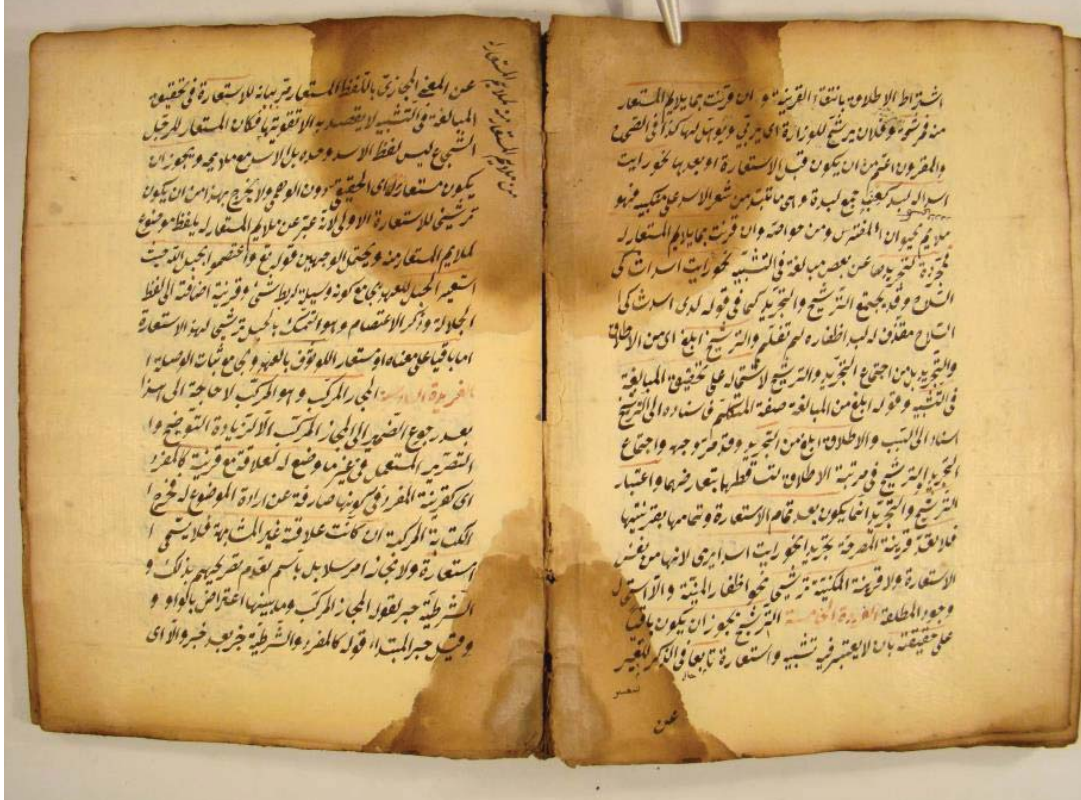 اشتراط الاطلاق بانتفاء القرينة وان قرنت بما يلايم المستعار
منه فمرشحة وفلان يرشح للوزارة اى يربى ويوهل لها كذا فى الصحاح
والمقرون اعم من ان يكون قبل الاستعارة او بعدها نحو رايت
اسدا له لبد كعنب جمع لبدة وهى ما تلبد من شعر الاسد على منكبيه فهو
ملايم للحيوان المفترس ومن خواصه وان قرنت بما يلايم المستعار له
فمجردة لتجريدها عن بعض مبالغة فى التشبيه نحو رايت اسدا شاكى
السلاح وقد يجتمع الترشيح والتجريد كما فى قوله لدى اسد شاكى
السلاح مقذف له لبد اظفاره لم تقلم والترشيح ابلغ اى من الاطلاق
والتجريد بل من اجتماع التجريد والترشيح لاشتماله على تحقيق المبالغة
فى التشبيه وقوله ابلغ من المبالغة صفة المتكلم فاسناده الى الترشيح
اسناد الى السبب والاطلاق ابلغ من التجريد وقد مر وجهه واجتماع
التجريد والترشيح فى مرتبة الاطلاق لتساقطهما بتعارضهما واعتبار
الترشيح والتجريد انما يكون بعد تمام الاستعارة وتمامها بقرينتها
فلا تعد قرينة المصرحة تجريدا نحو رايت اسدا يرمى لانها من نفس
الاستعارة ولا قرينة المكنية ترشيحا نحو اظفار المنية والا
وجود المطلقة الفريدة الخامسة الترشيح يجوز ان يكون باقيا
على حقيقته بان لا يعتبر فيه تشبيه واستعارة تابعا فى الذكر للتعبير
عن
من ملايم المستعار منه لملايم المستعار له
عن المعنى المجازى باللفظ المستعار تربيانه للاستعارة فى تحقيق
المبالغة فى التشبيه لا يقصد به الا تقوية فكان المستعار للرجل
الشجاع ليس لفظ الاسد وحده بل الاسد مع ملايمه ويجوز ان
يكون مستعارا اى الحقيقى دون الوهمى ولا يخرج بهذا من ان يكون
ترشيحا للاستعارة الاولى لانه عبر عن ملايم المستعار له بلفظ موضوع
لملايم المستعار منه ويحتمل الوجهين قوله تع واعتصموا بحبل الله حيث
استعير الحبل للعهد مع كونه وسيلة لربط شئ وقرينة اضافته الى لفظ
الجلالة وذكر الاعتصام وهو التمسك بالحبل ترشيحا لهذه الاستعارة
اما باقيا على معناه او مستعار اللوثوق بالعهد وجامع ثبات الوصلة
الفريدة السادسة المجاز المركب وهو المركب لا حاجة الى هذا
بعد رجوع الضمير الى المجاز المركب الا لزيادة التوضيح و
التقرير المستعمل فى غير ما وضع له لعلاقة مع قرينة كالمفرد
اى كقرينة المفرد فى كونها صارفة عن ارادة الموضوع له فخرج
الكناية المركبة ان كانت علاقة غير المشابهة فلا يسمى
استعارة ولا مجازا مرسلا بل باسم لعدم تصريحهم بذلك و
الشرطية خبر لقوله المجاز المركب وما بينها اعتراض بالواو و
وقيل خبر المبتدا قوله كالمفرد والشرطية خبر بعد خبر والا اى